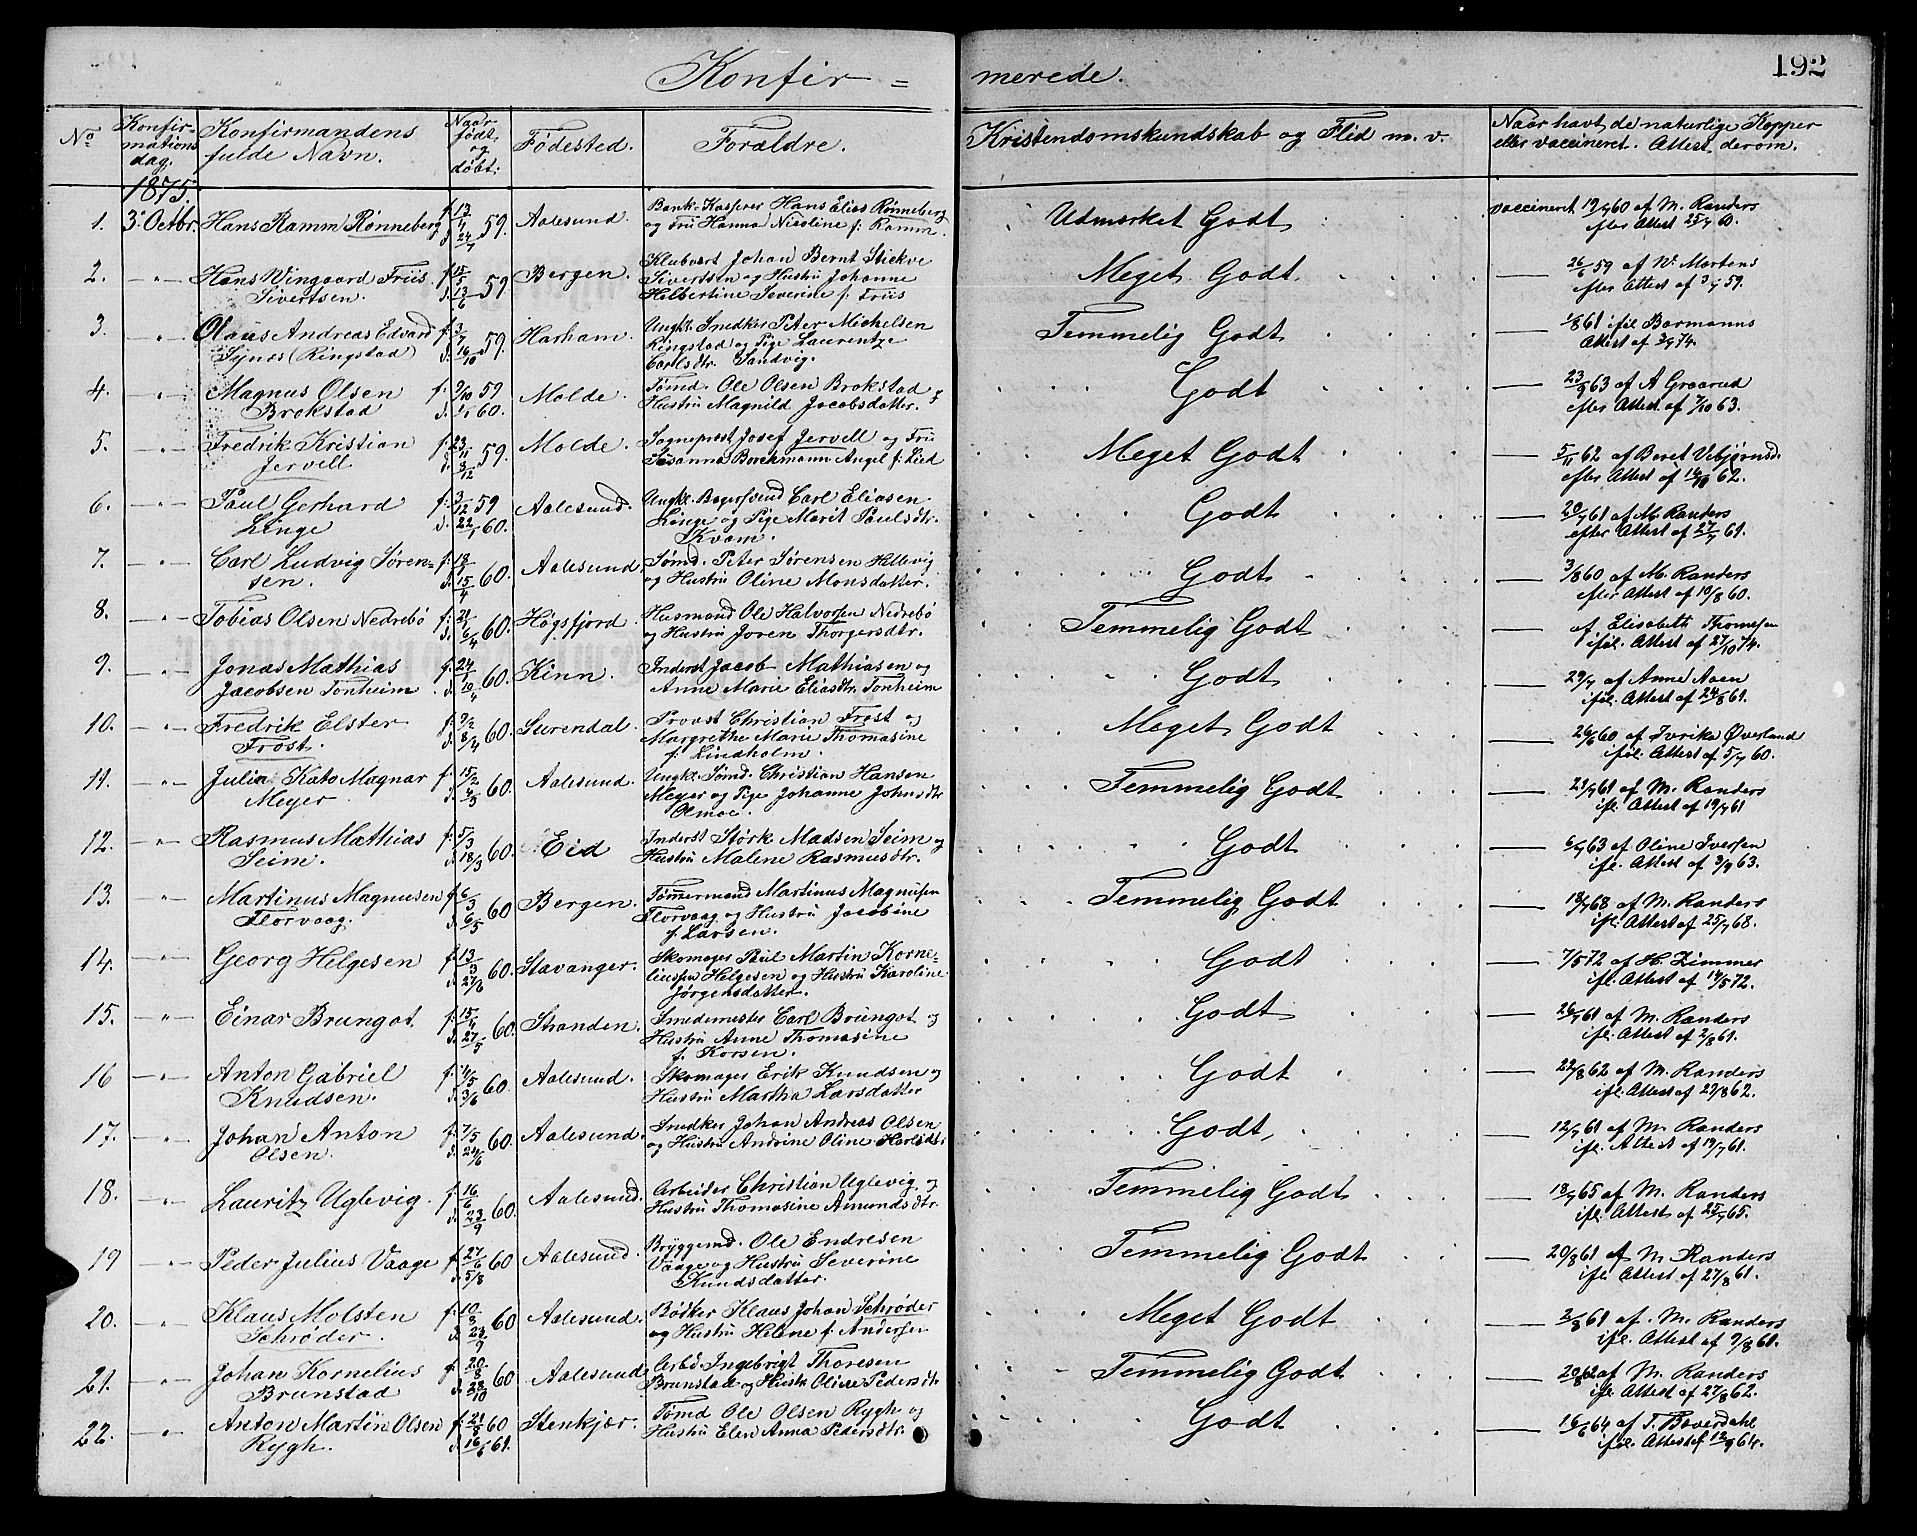 Konfir =
merede.
192
No
Konfir-
mations
dag.
Konfirmandens
fulde Navn.
Naar
født
og
døbt:
Fødested.
Forældre.
Kristendomskundskab og Flid m. v.
Naar havt de naturlige Kopper
eller vaccineret. Attest derom.
1875.
1. 3' Octbr. Hans Ramm Rønneberg 59. Aalesund. Bank-Kasserer Hans Elias Rønneberg Udmærket Godt vaccineret 19/7 60 af M. Randers
og Frü Hanna Nicoline f: Ramm. efter Attest 25/7 60.
2. -"- Hans Wingaard Friis 59 Bergen. Klubvært Johan Bernt Stickve Meget Godt 26/5 59 af W. Martens
Sivertsen. Sivertsen og Hustrü Johanne efter Attest af 3/7 59.
Helbertine Severine f: Friis
3. -"- Olaus Andreas Edvard f: 3/7 59. Harham. Ungk. Snedker Peter Michelsen Temmelig Godt 1/8 61 iføl. Bormanns
Synes (Ringstad) d. 16/10 Ringstad og Pige Laurentze Attest af
Carlsdtr. Sandvig.
4. -"- Magnus Olsen f: 9/10 59 Molde. Tømd. Ole Olsen Brokstad og Godt 23/9 63 af A Graarud
Brokstad d. 1/1 60. Hustrü Magnild Jacobsdatter. efter Attest af 7/10 63.
5. -"- Fredrik Kristian f: 23/11 59. Molde. Sogneprest Josef Jervell og Frü Meget Godt 5/11 62 af Beret Vebjørnsd.
Jervell d. 3/12 Susanna Borchmann Angel f: Lied efter Attest af 62.
6. -"- Paul Gerhard f: 3/12 59 Aalesund. Ungk. Bagersvend Carl Eliasen Godt 20/7 61 af M. Randers
Linge d. 22/1 60. Linge og Pige Marit Paulsdtr. efter Attest af 27/7 61.
Kvam.
7. -"- Carl Ludvig Søren= 60. Aalesund. Sømd. Peter Sørensen Hellevig Godt 3/8 60 af M. Randers
sen. d. 15/4 og Hustrü Oline Monsdatter. efter Attest af 10/8 60.
8. -"- Tobias Olsen Nedrebø 60. Høgsfjord. Husmand Ole Halvorsen Nedrebø Temmelig Godt af Elisabeth Thomesen
og Hustrü Joren Thorgersdtr. iføl. Attest af 27/10 74.
9. -"- Jonas Mathias f: 24/1 60. Kinn. Inderst Jacob Mathiasen og Godt 29/7 af Anne Aaen
Jacobsen Tonheim d. 10/4 Anne Marie Eliasdtr. Tonheim iføl. Attest af 24/8 61.
10. -"- Fredrik Elster f: 9/2 60. Surendal. Provst Christian Frost og Meget Godt 26/6 60 af Ivrika Øverland
Frost. d. 8/4 Margrethe Marie Thomasine iføl. Attest af 5/7 60.
f. Lindholm.
11. -"- Julia Kato Magnar f: 15/2 60. Aalesund. Ungk. Sømd. Christian Hansen Temmelig Godt 61 af M. Randers
Meyer d. 4/5 Meyer og Pige Johanne Johnsdtr ifl. Attest af 19/7 61
Olmoe.
12. -"- Rasmus Mathias f: 5/3 60. Eid Inderst Størk Madsen Seim og Godt 6/7 63 af Oline Iversen
Seim. d. 18/3 Hustrü Malene Rasmusdtr. ifl. Attest af 3/9 63.
13. -"- Martinus Magnusen f: 6/3 60 Bergen. Tømmermand Martinus Magnusen Temmelig Godt 18/7 68 af M. Randers
Florvaag. d. 6/5 Florvaag og Hustrü Jacobine ifl. Attest af 25/7 68.
f. Larsen.
14. -"- Georg Helgesen f: 13/3 60. Stavanger. Skomager Paül Martin Korne= Godt 7/5 72 af H. Zimmer
d. 27/6 liussen Helgesen og Hustrü Karoline ifl. Attest af 14/5 72.
Jørgensdatter.
15. -"- Einar Brungot. f: 15/4 60. Stranden. Smedemester Carl Brungot og Godt 26/7 61 af M. Randers
d. 27/5 Hustrü Anne Thomasine ifl. Attest af 2/8 61.
f. Korsen.
16 -"- Anton Gabriel f: 4/5 60. Aalesund. Skomager Erik Knudsen og Godt 22/8 62 af M. Randers
Knudsen. d. 3/6 Hustrü Martha Larsdatter ifl. Attest af 29/8 62.
17. -"- Johan Anton f: 7/5 60. Aalesund. Snedker Johan Andreas Olsen Godt, 12/7 61 af M. Randers
Olsen. d. 24/6 og Hustrü Andrine Oline ifl. Attest af 19/7 61.
18. -"- Lauritz Uglevig. f: 16/6 60. Aalesund. Arbeider Christian Uglevig og Temmelig Godt 18/7 65 af M. Randers
d. 23/9 Hustrü Thomasine Amundsdtr. ifl. Attest af 25/7 65.
19 -"- Peder Julius Vaage f: 27/6 60 Aalesund. Bryggemd. Ole Endresen Temmelig Godt 20/8 61 af M. Randers
d. 5/8 Vaage og Hustrü Severine ifl. Attest af 27/8 61.
Knudsdatter.
20. -"- Klaus Molsten f: 10/8 60 Aalesund. Bødker Klaus Johan Schrøder Meget Godt 2/8 61 af M. Randers
Schrøder. d. 23/9 og Hustrü Helene f: Andersen ifl. Attest af 9/8 61.
21. -"- Johan Kornelius f: 20/8 60 Aalesund Arbd. Ingebrigt Thoresen Temmelig Godt 20/8 62 af M. Randers
Brunstad d. 28/10 Brunstad og Hustr Oline Pedersdtr ifl. Attest af 27/8 62.
22. -"- Anton Martin Olsen f: 21/8 60 Stenkjær. Tømd Ole Olsen Rygh og Godt 16/6 64 af T. Boverdahl
Rygh. 61. Hustrü Elen Anna Pedersdtr. iføl. Attest af 12/9 64.